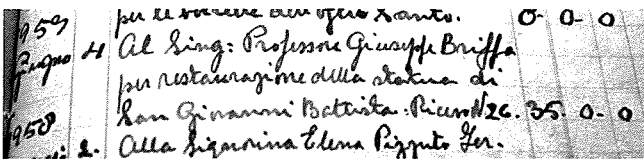 1959 per le dell'Ufficio Santo. 0 - 0 - 0
Giugno 4 Al Sing: Professore Giuseppe Briffa
per restaurazione della statua di
San Giovanni Battista. Ricevo N 26. 35. 0 - 0
1958
2. Alla Signorina Elena Pizzuto Fer.